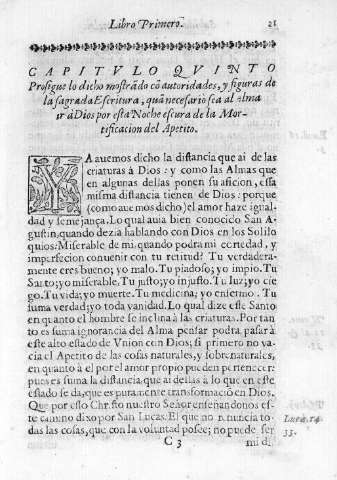 Libro Primero. 21
CAPITVLO QVINTO
Prosigue lo dicho mostrãdo cõ autoridades, y figuras de
la sagrada Escritura, quã necesario sea al alma
ir à Dios por esta Noche escura de la Mor-
tificacion del Apetito.
YA auemos dicho la distancia que ai de las
criaturas à Dios: y como las Almas que
en algunas dellas ponen su aficion, essa
misma distancia tienen de Dios: porque
(como auemos dicho) el amor haze igual-
dad y semejança. Lo qual auia bien conocido San A-
gustin, quando dezia hablando con Dios en los Solilo
quios: Miserable de mi, quando podra mi cortedad, y
imperfecion conuenir con tu retitud? Tu verdadera-
mente eres bueno; yo malo. Tu piadoso; yo impio. Tu
Santo; yo miserable. Tu justo; yo injusto. Tu luz; yo cie
go. Tu vida; yo muerte. Tu medicina; yo enfermo. Tu
suma verdad; yo toda vanidad. Lo qual dize este Santo
en quanto el hombre se inclina à las criaturas. Por tan
to es suma ignorancia del Alma pensar podra pasar à
este alto estado de Vnion con Dios; si primero no va-
cia el Apetito de las cosas naturales, y sobrenaturales,
en quanto à el por el amor propio pueden pertenecer:
pues es suma la distancia que ai dellas à lo que en este
estado se da, que es puramente transformaciõ en Dios.
Que por esto Christo nuestro Señor enseñandonos es-
te camino dixo por San Lucas. El que no renũcia to-
das las cosas, que con la voluntad posee; no puede ser
Lucæ. 14
33.
C 3 mi di-